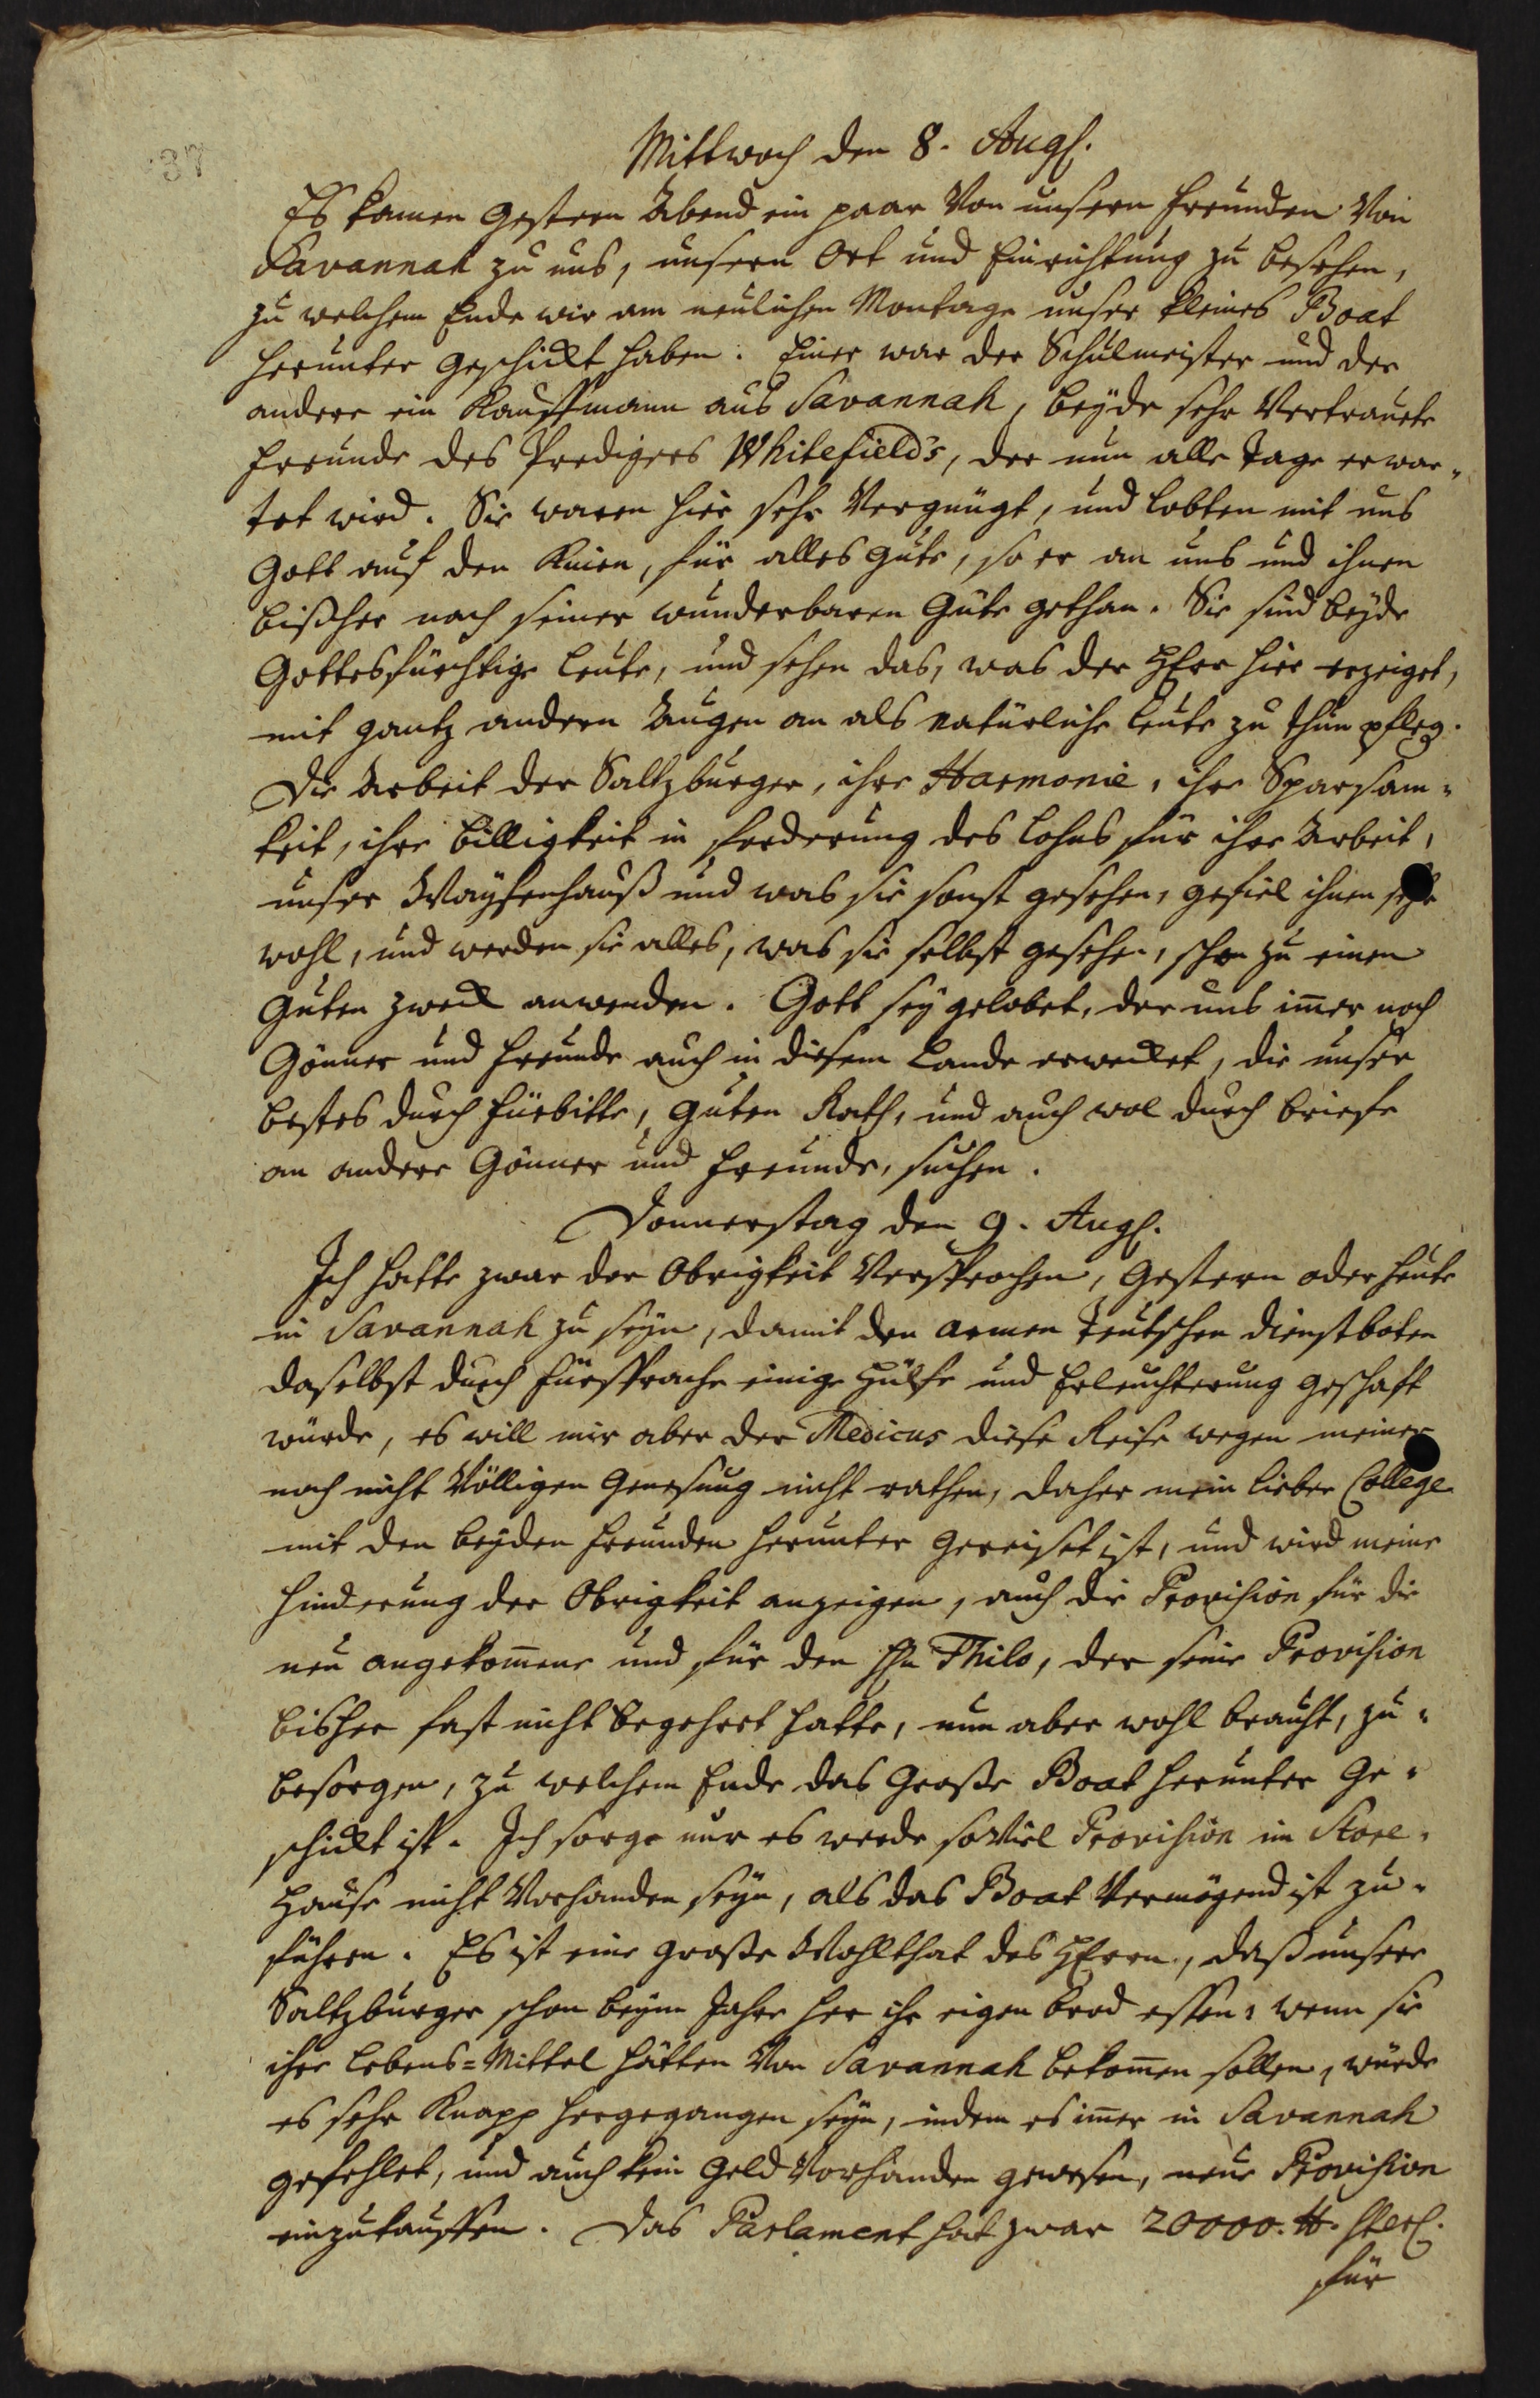 37
Mittwoch den 8. Augs.
Es kamen gestern Abend ein paar von unsern Freunden von
Savannah zu uns, unsern Ort und Einrichtung zu besehen,
zu welchem Ende wir am neulichen Montage unser kleines Boat
herunter geschickt haben. Einer war der Schulmeister und der
andere ein Kauffmann aus Savannah, beyde sehr vertraute
Freunde des Predigers Whitefield's, der nun alle Tage erwar-
tet wird. Sie waren hier sehr vergnügt, und lobten mit uns
Gott auf den Knien, für alles Gute, so er an uns und ihnen
bißher nach seiner wunderbaren Güte gethan. Sie sind beyde
Gottesfürchtige Leute, und sehen das, was der HErr hier erzeiget,
mit gantz andern Augen an als natürliche Leute zu thun pfleg.
Die Arbeit der Saltzburger, ihre Harmonie, ihre Sparsam-
keit, ihre Billigkeit in Forderung des Lohns für ihre Arbeit,
unser Waysenhauß und was sie sonst gesehen, gefiel ihnen sehr
wohl, und werden sie alles, was sie selbst gesehen, schon zu einem
guten Zweck anwenden. Gott sey gelobet, der uns im̄er noch
Gönner und Freunde auch in diesem Lande erwecket, die unser
bestes durch Fürbitte, guten Rath, und auch wol durch Briefe
an andere Gönner und Freunde, suchen.
Donnerstag den 9. Augs.
Ich hatte zwar der Obrigkeit versprochen, gestern oder heute
in Savannah zu seyn, damit den armen Teutschen Dienstboten
daselbst durch Fürsprache einige Hülfe und Erleuchterung geschaft
würde, es will mir aber der Medicus diese Reise wegen meiner
noch nicht völligen Genesung nicht rathen, daher mein lieber College
mit den beyden Freunden herunter gereiset ist, und wird meine
Hinderung der Obrigkeit anzeigen, auch die Provision für die
neu angekom̄ene und für den Hn Thilo, der seine Provision
bisher fast nicht begehret hatte, nun aber wohl braucht, zu-
besorgen, zu welchem Ende das große Boat herunter ge-
schickt ist. Ich sorge nur es werde soviel Provision im Store-
Hause nicht vorhanden seyn, als das Boat vermögend ist zu-
führen. Es ist eine große Wohlthat des HErrn, daß unsere
Saltzburger schon beym Jahre her ihr eigen Brod essen, wenn sie
ihre Lebens-Mittel hätten von Savannah bekom̄en sollen, würde
es sehr knapp hergegangen seyn, indem es im̄er in Savannah
gefehlet, und auch kein Geld vorhanden gewesen, neue Provision
einzukauffen. Das Parlament hat zwar 20000. ℔. Sterl.
für